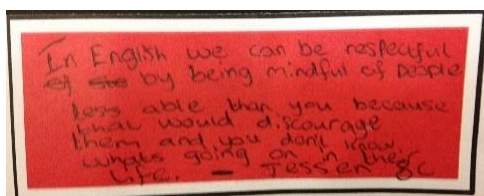 In English we can be respectful
by being mindful of people
less able than you because
that would discourage
them and you don't know
whats going on in their
life. - Jessen 8C